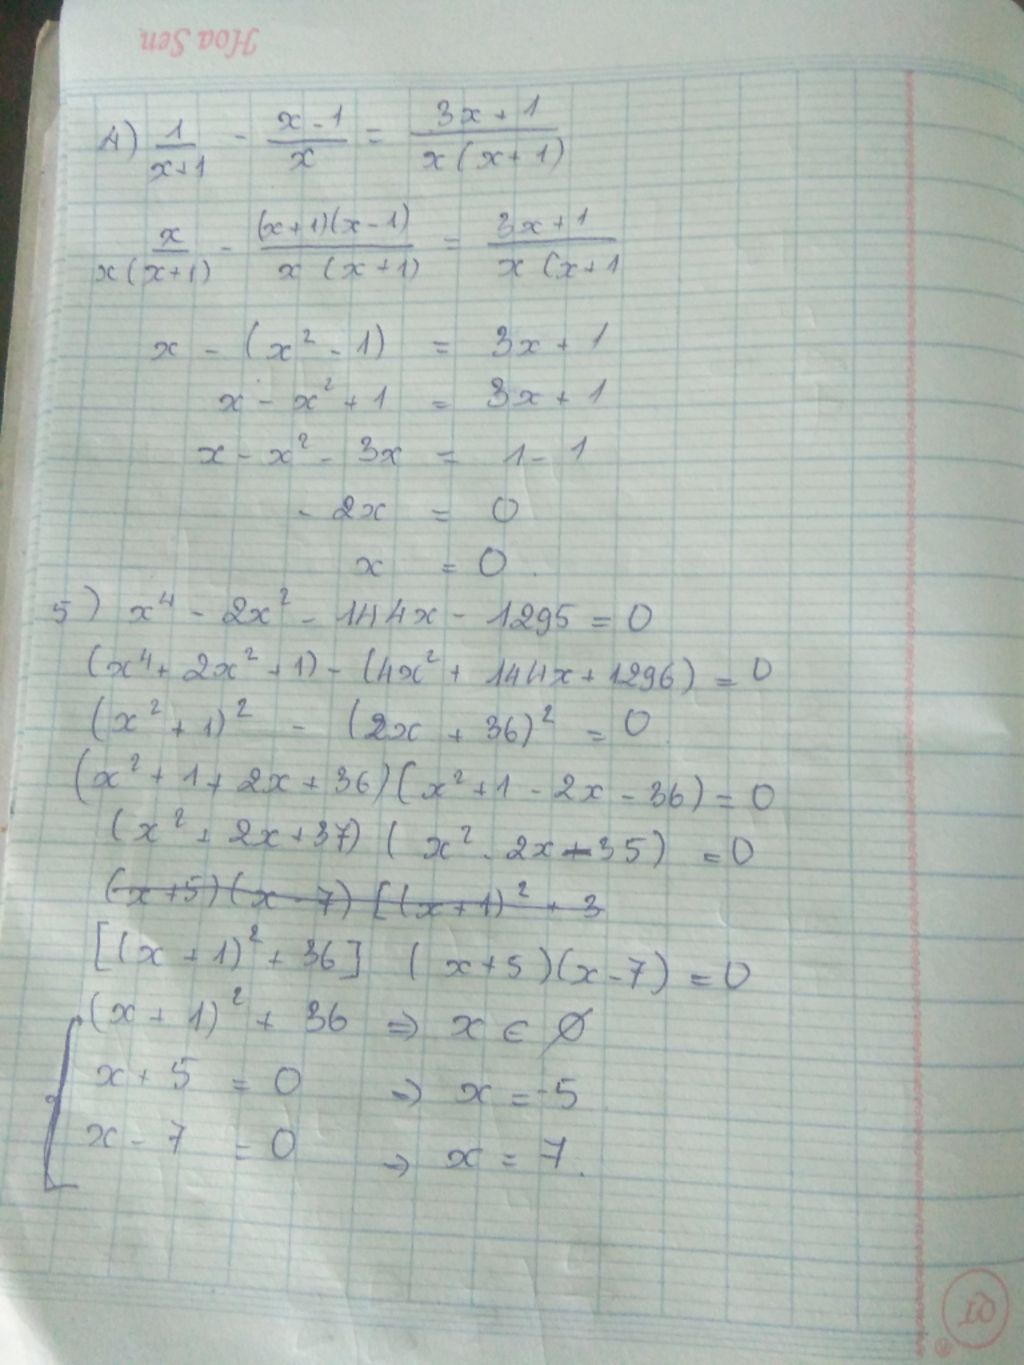 Hoa Sen
4) \frac{1}{x+1} - \frac{x-1}{x} = \frac{3x+1}{x(x+1)}
\frac{x}{x(x+1)} - \frac{(x+1)(x-1)}{x(x+1)} = \frac{3x+1}{x(x+1}
x - (x² - 1) = 3x + 1
x - x² + 1 = 3x + 1
x - x² - 3x = 1 - 1
- 2x = 0
x = 0.
5) x⁴ - 2x² - 144x - 1295 = 0
(x⁴ + 2x² + 1) - (4x² + 144x + 1296) = 0
(x² + 1)² - (2x + 36)² = 0
(x² + 1 + 2x + 36)(x² + 1 - 2x - 36) = 0
(x² + 2x + 37)(x² - 2x - 35) = 0
(x+5)(x-7)[(x+1)² + 3
[(x+1)² + 36] (x+5)(x-7) = 0
(x+1)² + 36 ⇒ x ∈ ∅
x + 5 = 0 → x = -5
x - 7 = 0 → x = 7.